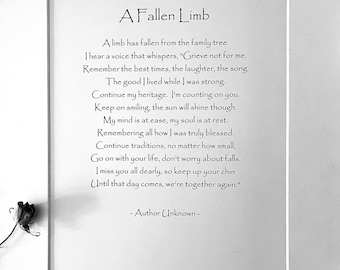 A Fallen Limb
A limb has fallen from the family tree.
I hear a voice that whispers, "Grieve not for me.
Remember the best times, the laughter, the song.
The good I lived while I was strong.
Continue my heritage. I'm counting on you.
Keep on smiling, the sun will shine though.
My mind is at ease, my soul is at rest.
Remembering all how I was truly blessed.
Continue traditions, no matter how small,
Go on with your life, don't worry about falls.
I miss you all dearly, so keep up your chin
Until that day comes, we're together again."
- Author Unknown -